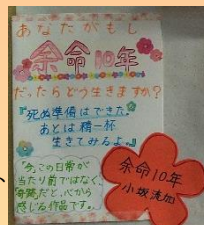 あなたがもし
余命10年
だったらどう生きますか?
『死ぬ準備はできた。
あとは精一杯
生きてみるよ。』
「今、この日常が
当たり前ではなく、
奇跡だと、心から
感じる作品です。」
余命10年
小坂流加